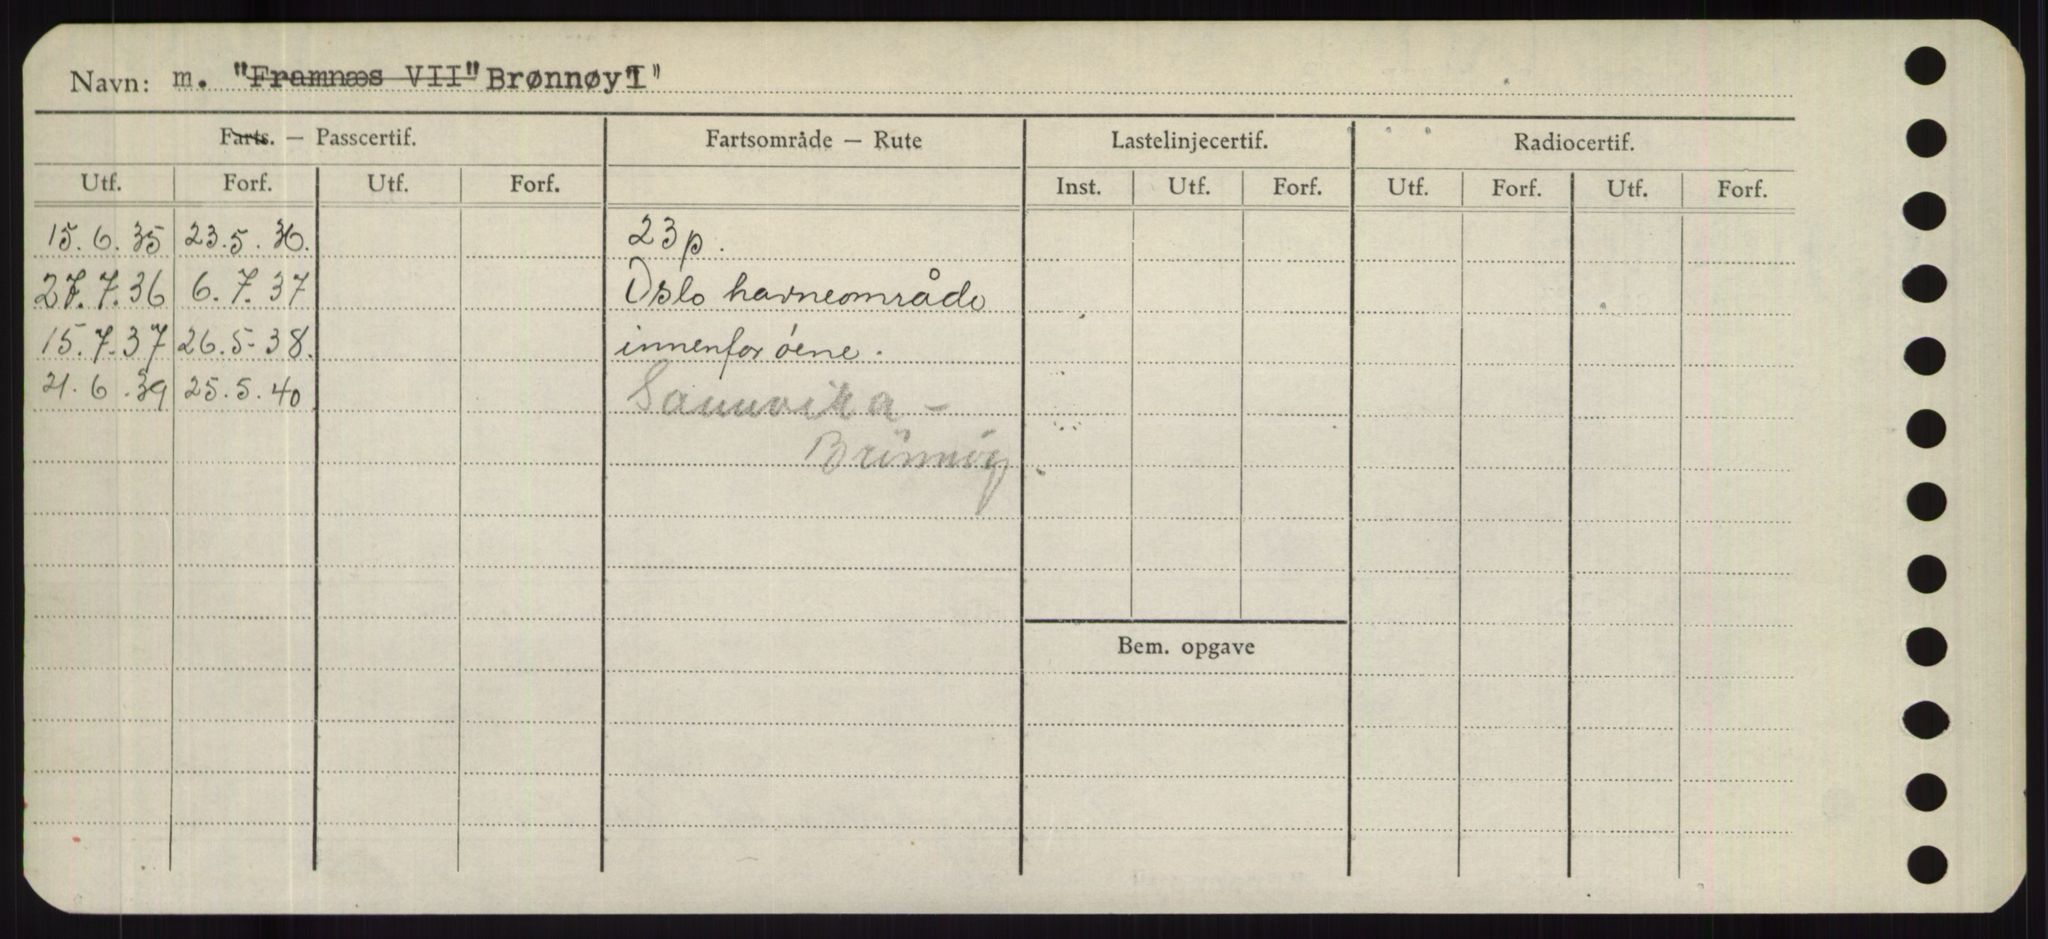 Navn: m. "Framnæs VII" Brønnøy I"
Farts. — Passcertif. Fartsområde — Rute Lastelinjecertif. Radiocertif.
Utf. Forf. Utf. Forf. Inst. Utf. Forf. Utf. Forf. Utf. Forf.
15.6.35 23.5.36. 23p.
27.7.36 6.7.37 Oslo havneområde
15.7.37 26.5-38. innenfor öene.
21.6.39 25.5.40 Sannvika -
Brönnöy
Bem. opgave